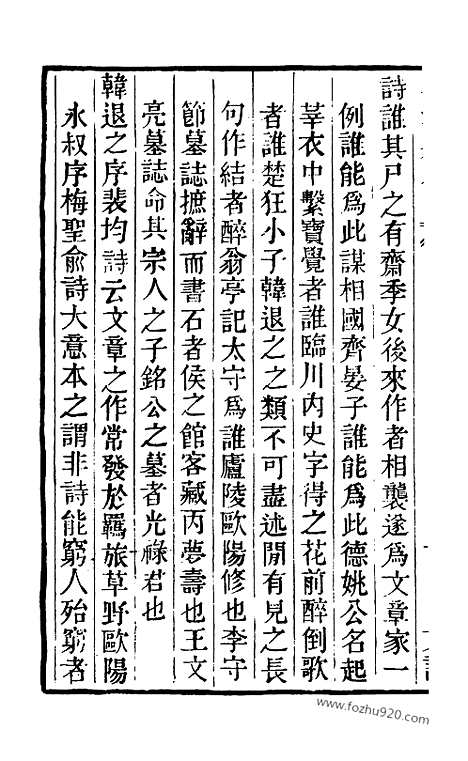 詩誰其尸之有齋季女後來作者相襲遂爲文章家一
例誰能爲此謀相國齊晏子誰能爲此德姚公名起
莘衣中繫寶覺者誰臨川内史字得之花前醉倒歌
者誰楚狂小子韓退之之類不可盡述閒有見之長
句作結者醉翁亭記太守爲誰廬陵歐陽修也李守
節墓誌摭辭而書石者侯之館客藏丙夢壽也王文
亮墓誌命其宗人之子銘公之墓者光祿君也
韓退之序裴均詩云文章之作常發於羈旅草野歐陽
永叔序梅聖俞詩大意本之謂非詩能窮人殆窮者
www.fozhu920.com